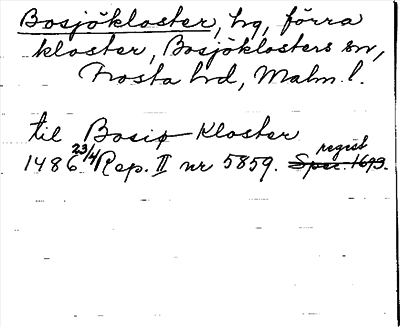 Bosjökloster, hg, förra
kloster, Bosjöklosters sn,
Frosta hd, Malm. l.
til Bosiø Kloster
1486 23/4 Rep. II nr 5859. Spec. 1693. regist